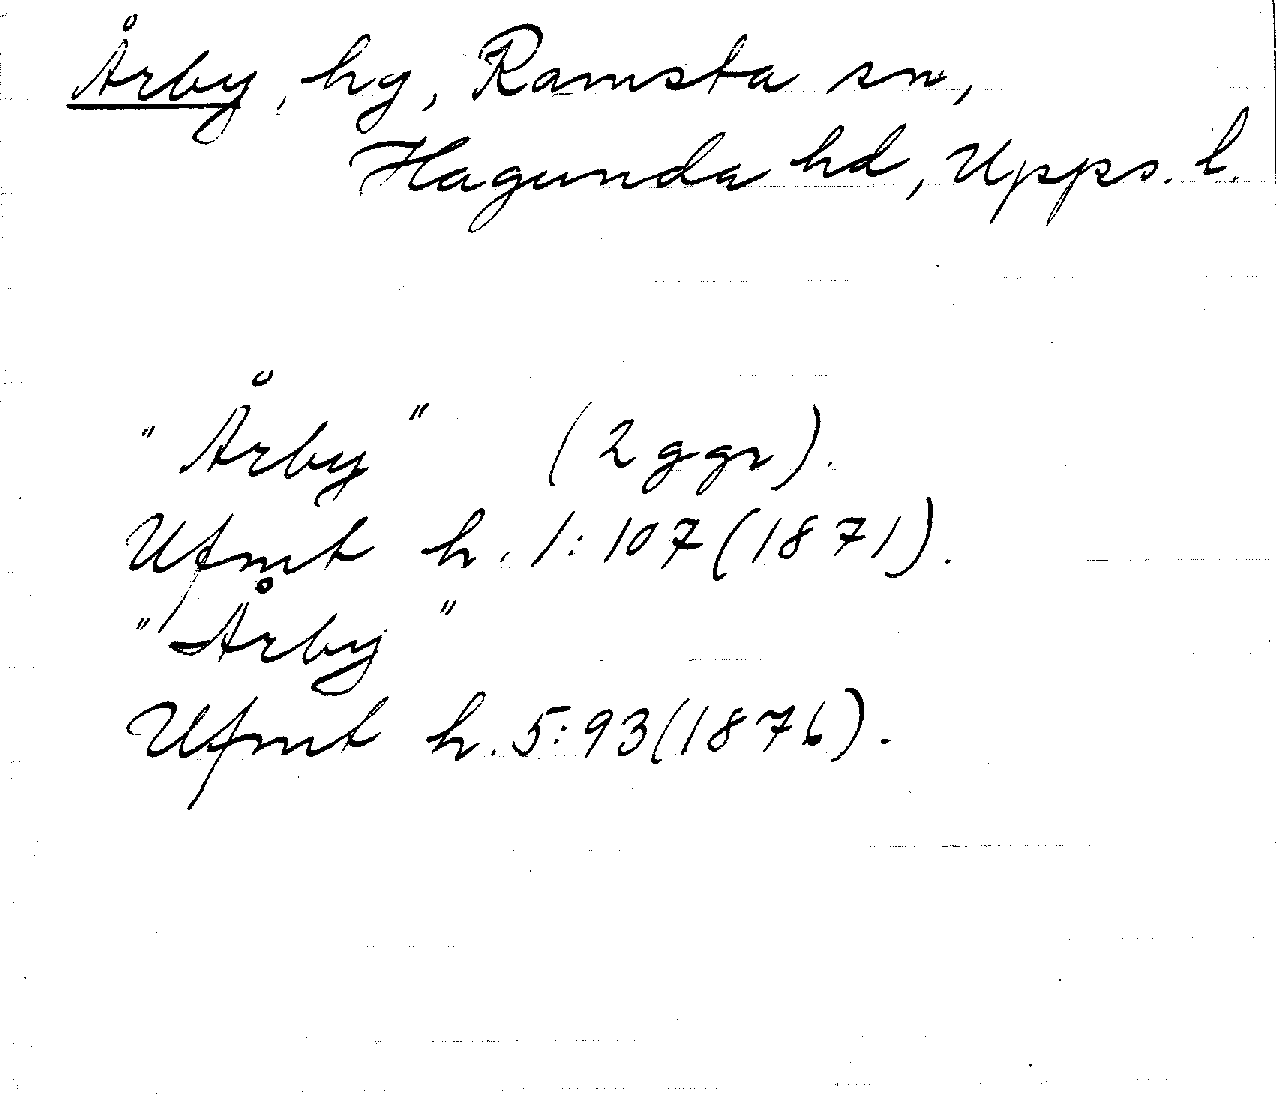 Årby, hg, Ramsta sn,
Hagunda hd, Upps. l.
"Årby" (2 ggr).
Ufmt h. 1:107(1871).
"Årby"
Ufmt h. 5:93(1876).